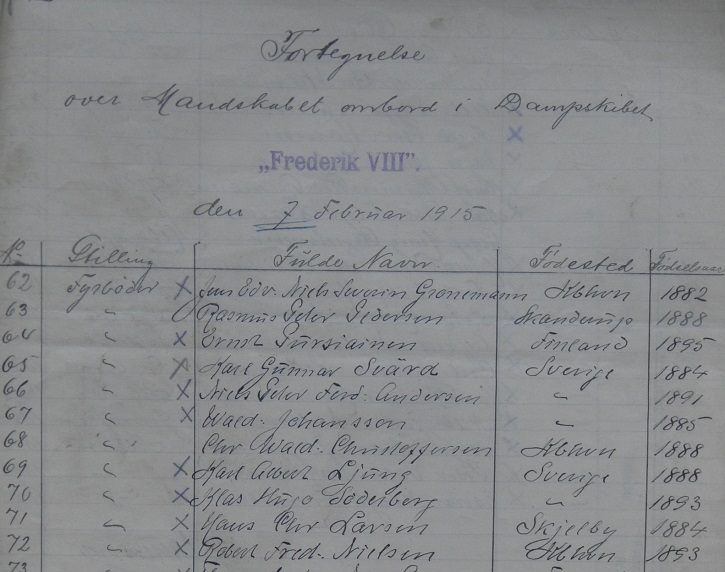 Fortegnelse
over Mandskabet ombord i Dampskibet
„Frederik VIII".
den 7 Februar 1915
No Stilling Fulde Navn Födested Födselsaar
62 Fyrböder x Jens Edv. Niels Severin Gronemann Kbhvn 1882
63 " Rasmus Peter Pedersen Skanderup 1888
64 " x Ernst Pursiainen Finland 1895
65 " x Karl Gunnar Svärd Sverige 1884
66 " x Niels Peter Ferd. Andersen " 1891
67 " x Wald. Johansson " 1885
68 " Chr Wald. Christoffersen Kbhvn 1888
69 " x Karl Albert Ljung Sverige 1888
70 " x Klas Hugo Söderberg " 1893
71 " x Hans Chr Larsen Skjelby 1884
72 " x Robert Fred. Nielsen Kbhvn 1893
73